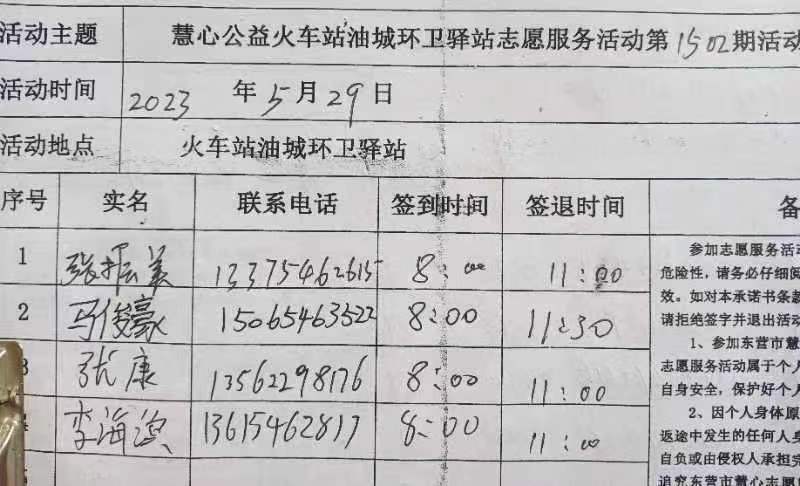 活动主题 慧心公益火车站油城环卫驿站志愿服务活动第1502期活动
活动时间 2023 年 5 月 29 日
活动地点 火车站油城环卫驿站
序号 实名 联系电话 签到时间 签退时间 备
1 张振美 13375462615 8:00 11:00
2 马俊豪 15065463522 8:00 11:30
3 张康 13562298176 8:00 11:00
李海滨 13615462817 8:00 11:00
参加志愿服务活动
危险性，请务必仔细阅
效。如对本承诺书条款
请拒绝签字并退出活动
1、参加东营市慧
志愿服务活动属于个人
自身安全，保护好个人
2、因个人身体原
返途中发生的任何人身
自负或由侵权人承担完
追究东营市慧心志愿